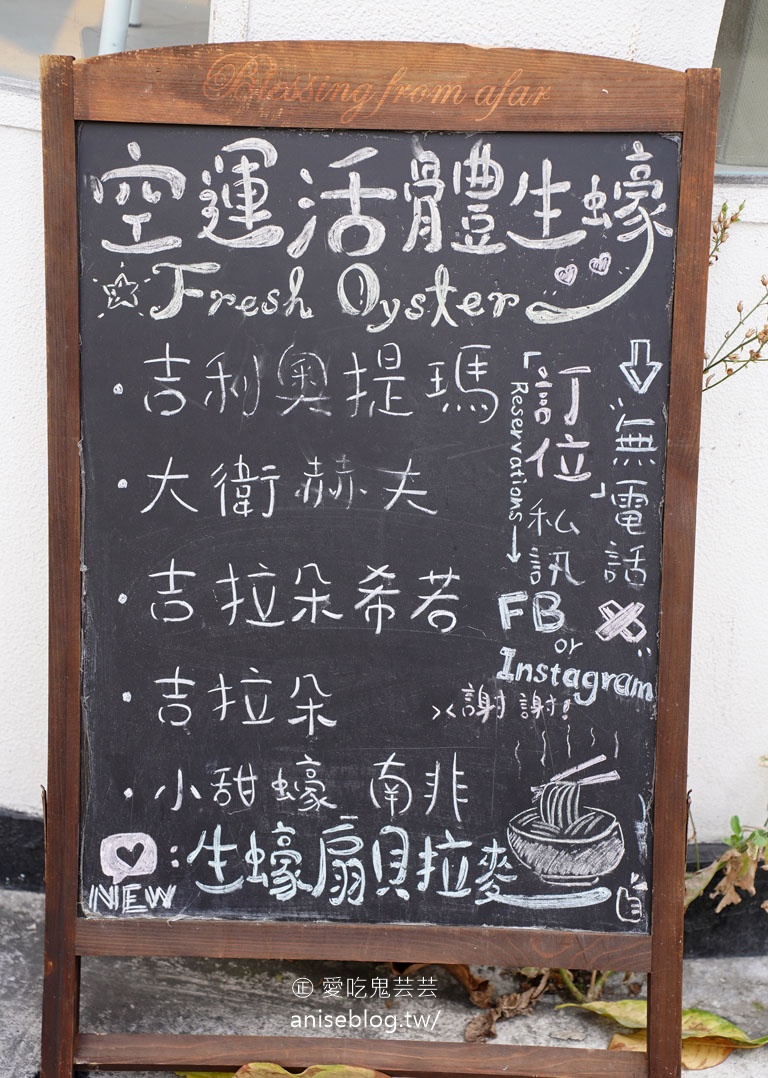 Blessing from afar
空運活體生蠔
Fresh Oyster
·吉利奧提瑪
·大衛赫夫
·吉拉朵希若
·吉拉朵
·小甜蠔 南非
「訂位」
Reservations→
私訊
FB
or
Instagram
無電話
><謝謝!
NEW
:生蠔扇貝拉麥
愛吃鬼芸芸
aniseblog.tw/